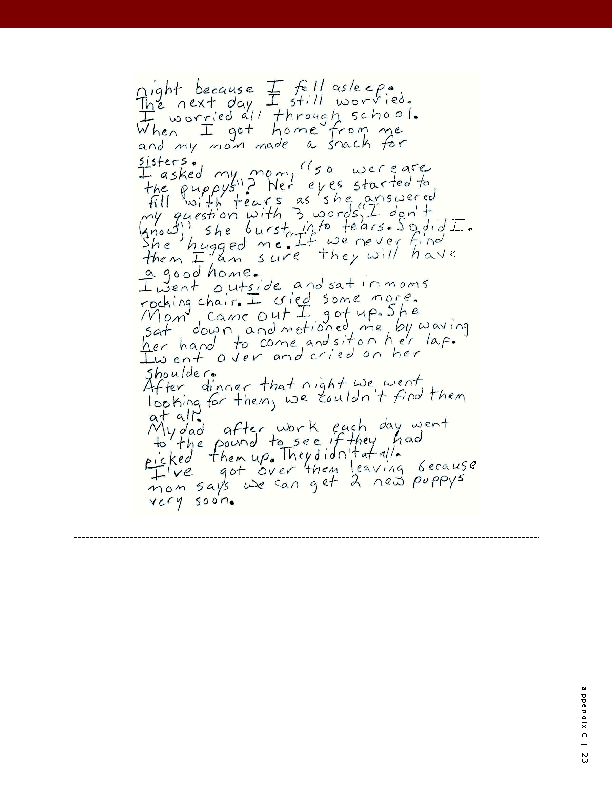 night because I fell asleep.
The next day I still worried.
I worried all through school.
When I got home from me
and my mom made a snack for
sisters.
I asked my mom, "so were are
the puppys"? Her eyes started to
fill with tears as she answered
my question with 3 words, "I don't
know," she burst into tears. So did I.
She hugged me. If we never find
them I am sure they will have
a good home.
I went outside and sat in moms
rocking chair. I cried some more.
Mom came out I got up. She
sat down and motioned me by waving
her hand to come and sit on her lap.
I went over and cried on her
shoulder.
After dinner that night we went
looking for them, we couldn't find them
at all.
My dad after work each day went
to the pound to see if they had
picked them up. They didn't at all.
I've got over them leaving because
mom says we can get 2 new puppys
very soon.
appendix C | 23